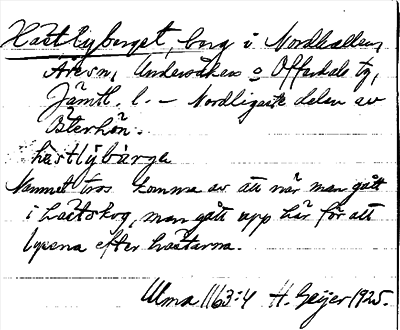 Hästlyberget, berg i Nordhallen,
Åresn, Undersåkers o Offerdals tg,
Jämtl. l. – Nordligaste delen av
Österhön.
hästlybärge
Namnet tros komma av att när man gått
i hästskog, man gått upp här för att
lyssna efter hästarna.
Ulma 1163:4 H. Geijer 1925.